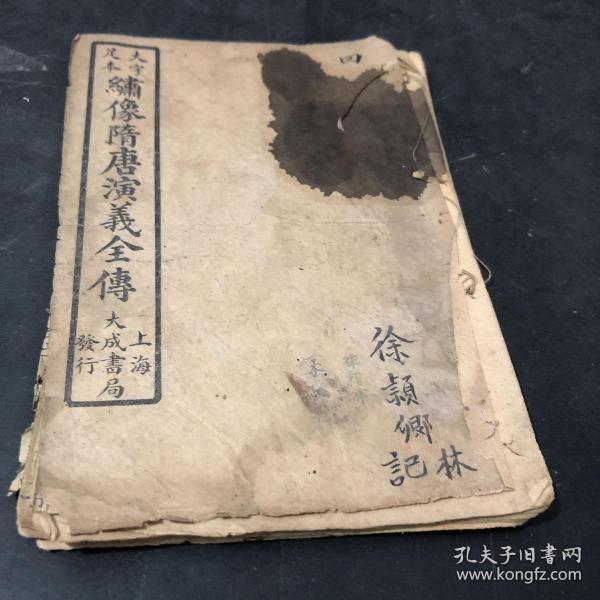 大字
足本
繡像隋唐演義全傳
上海
大成書局
發行
四
徐穎卿記
林
孔夫子旧书网
www.kongfz.com